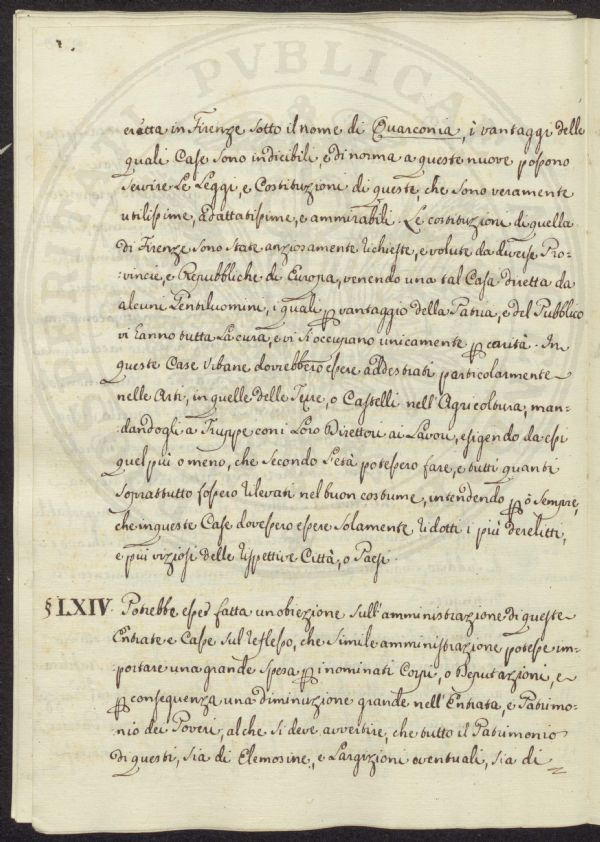 eretta in Firenze sotto il nome di Quarconia, i vantaggi delle
quali Case sono indicibili, e di norma a queste nuove possono
servire le Leggi, e Costituzioni di queste, che sono veramente
utilissime, adattatissime, e ammirabili. Le costituzioni di quella
di Firenze sono state anziosamente richieste, e volute da diverse Pro-
:vincie, e Repubbliche di Europa, venendo una tal Casa diretta da
alcuni Gentiluomini, i quali p vantaggio della Patria, e del Pubblico
vi hanno tutta la cura, e vi si occupano unicamente p carità. In
queste Case Urbane dovrebbero essere addestrati particolarmente
nelle Arti, in quelle delle Terre, o Castelli nell'Agricoltura, man-
:dandogli a Truppe con i Loro Direttori ai Lavori, esigendo da essi
quel più o meno, che secondo l'età potessero fare, e tutti quanti
soprattutto fossero rilevati nel buon costume, intendendo p ò sempre,
che in queste Case dovessero essere solamente ridotti i più derelitti,
e più viziosi delle rispettive Città, o Paesi.
§LXIV. Potrebbe esser fatta un obiezione sull'amministrazione di queste
Entrate e Case sul reflesso, che simile amministrazione potesse im-
:portare una grande spesa p i nominati Corpi, o Deputazioni, e
p conseguenza una diminuzione grande nell'Entrata, e Patrimo-
:nio dei Poveri, al che si deve avvertire, che tutto il Patrimonio
di questi, sia di Elemosine, e Largizioni eventuali, sia di
PUBLICAE